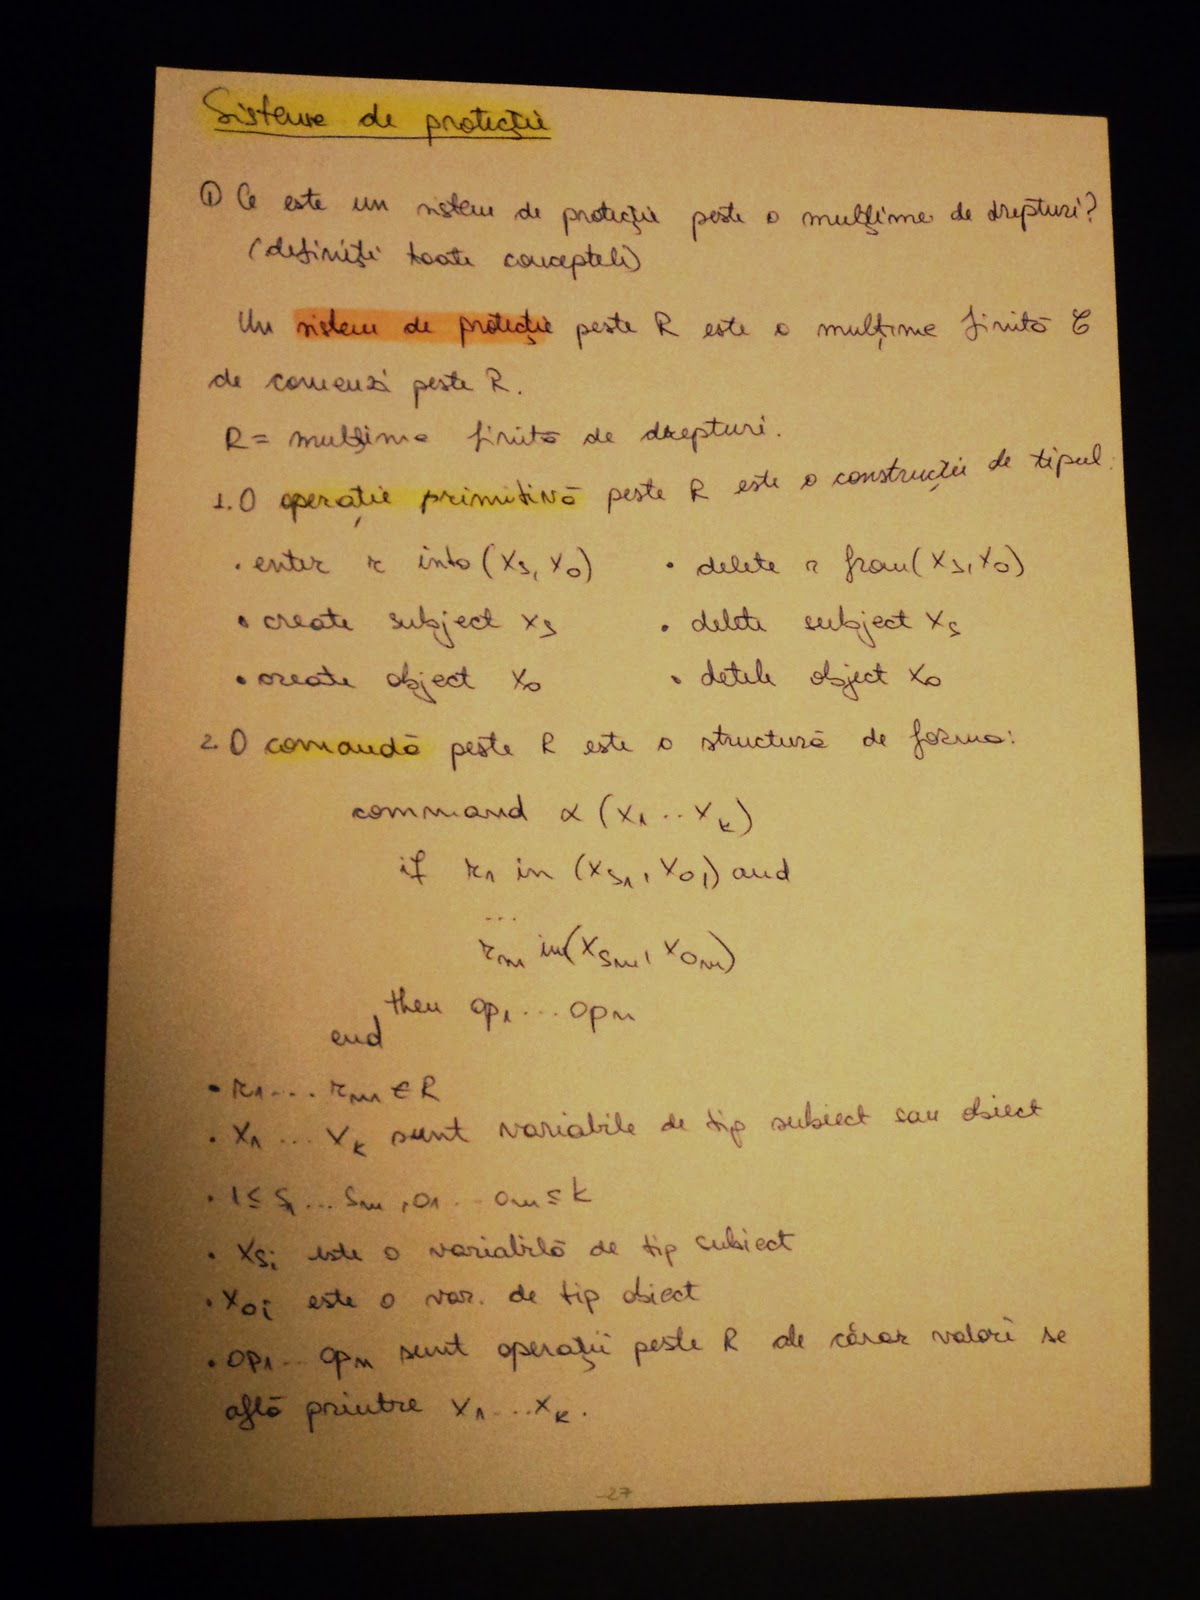 Sisteme de protecție
① Ce este un sistem de protecție peste o mulțime de drepturi?
(definiți toate conceptele)
Un sistem de protecție peste R este o mulțime finită C
de comenzi peste R.
R = mulțime finită de drepturi.
1. O operație primitivă peste R este o construcție de tipul:
• enter r into (Xs, Xo) • delete r from (Xs, Xo)
• create subject Xs • delete subject Xs
• create object Xo • detele object Xo
2. O comandă peste R este o structură de forma:
command α (X1 .. Xk)
if r1 in (Xs1, Xo1) and
...
rm in (Xsm, Xom)
then op1 ... opn
end
• r1 .... rm ∈ R
• X1 ... Xk sunt variabile de tip subiect sau obiect
• 1 ≤ s1 ... sm, o1 ... om ≤ k
• Xsi este o variabilă de tip subiect
• Xoi este o var. de tip obiect
• op1 ... opn sunt operații peste R de căror valori se
află printre X1 ... Xk.
-27